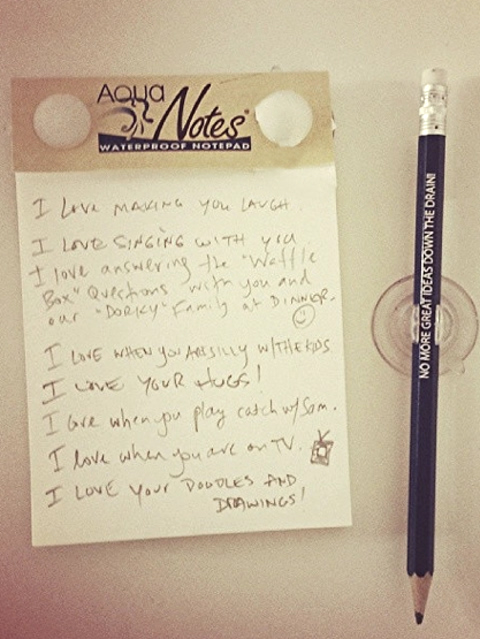 AQUA Notes
WATERPROOF NOTEPAD
I LOVE MAKING YOU LAUGH.
I LOVE SINGING WITH YOU.
I love answering the "Waffle
Box" Questions with you and
our "DORKY" Family at DINNER.
I LOVE WHEN YOU ARE SILLY W/THE KIDS
I LOVE YOUR HUGS!
I love when you play catch w/Sam.
I love when you are on TV.
I LOVE YOUR DOODLES AND
DRAWINGS!
NO MORE GREAT IDEAS DOWN THE DRAIN!